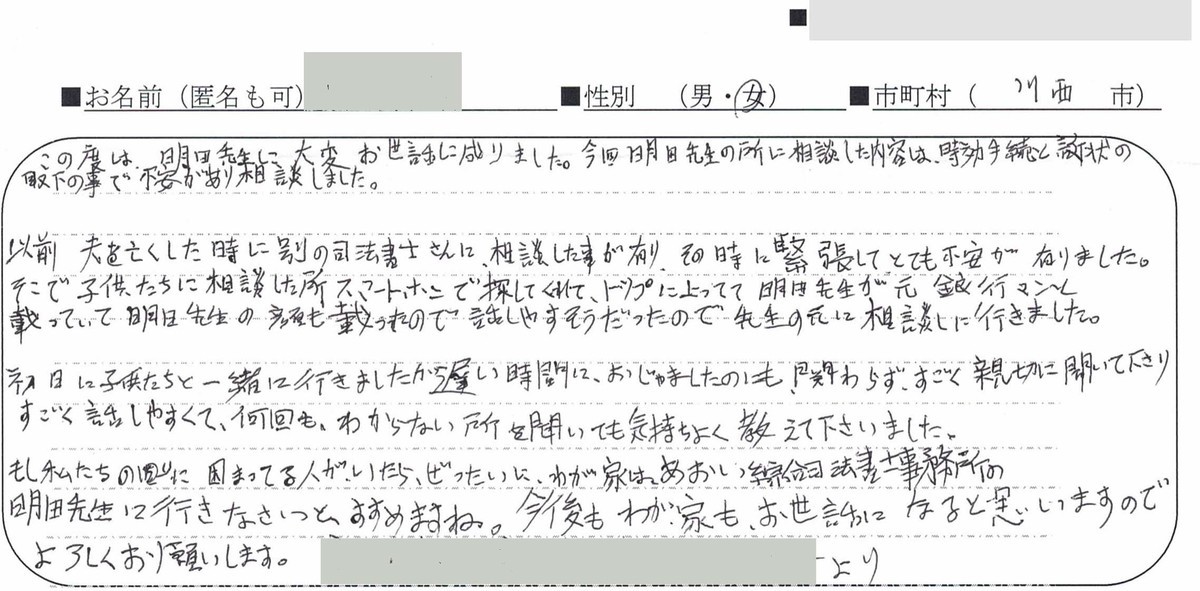 ■
■お名前（匿名も可） ■性別 （男・女） ■市町村（ 川西 市）
この度は、明田先生に大変お世話に成りました。今回明田先生の所に相談した内容は、時効手続と訴状の
取下の事で不安があり相談しました。
以前 夫を亡くした時に別の司法書士さんに、相談した事が有り、その時に緊張してとても不安が有りました。
そこで子供たちに相談した所スマートホンで探してくれて、トップによってて明田先生が元銀行マンと
載っていて明田先生の顔も載ったので話しやすそうだったので先生の元に相談しに行きました。
初日に子供たちと一緒に行きましたが遅い時間に、おじゃましたのにも関わらず、すごく親切に聞いて下さり
すごく話しやすくて、何回も、わからない所を聞いても気持ちよく教えて下さいました、
もし私たちの回りに困まってる人が、いたら、ぜったいに、わが家は、あおい総合司法書士事務所の
明田先生に行きなさいっと、すすめますね。今後もわが家も、お世話になると思いますので
よろしくおり願いします。 より